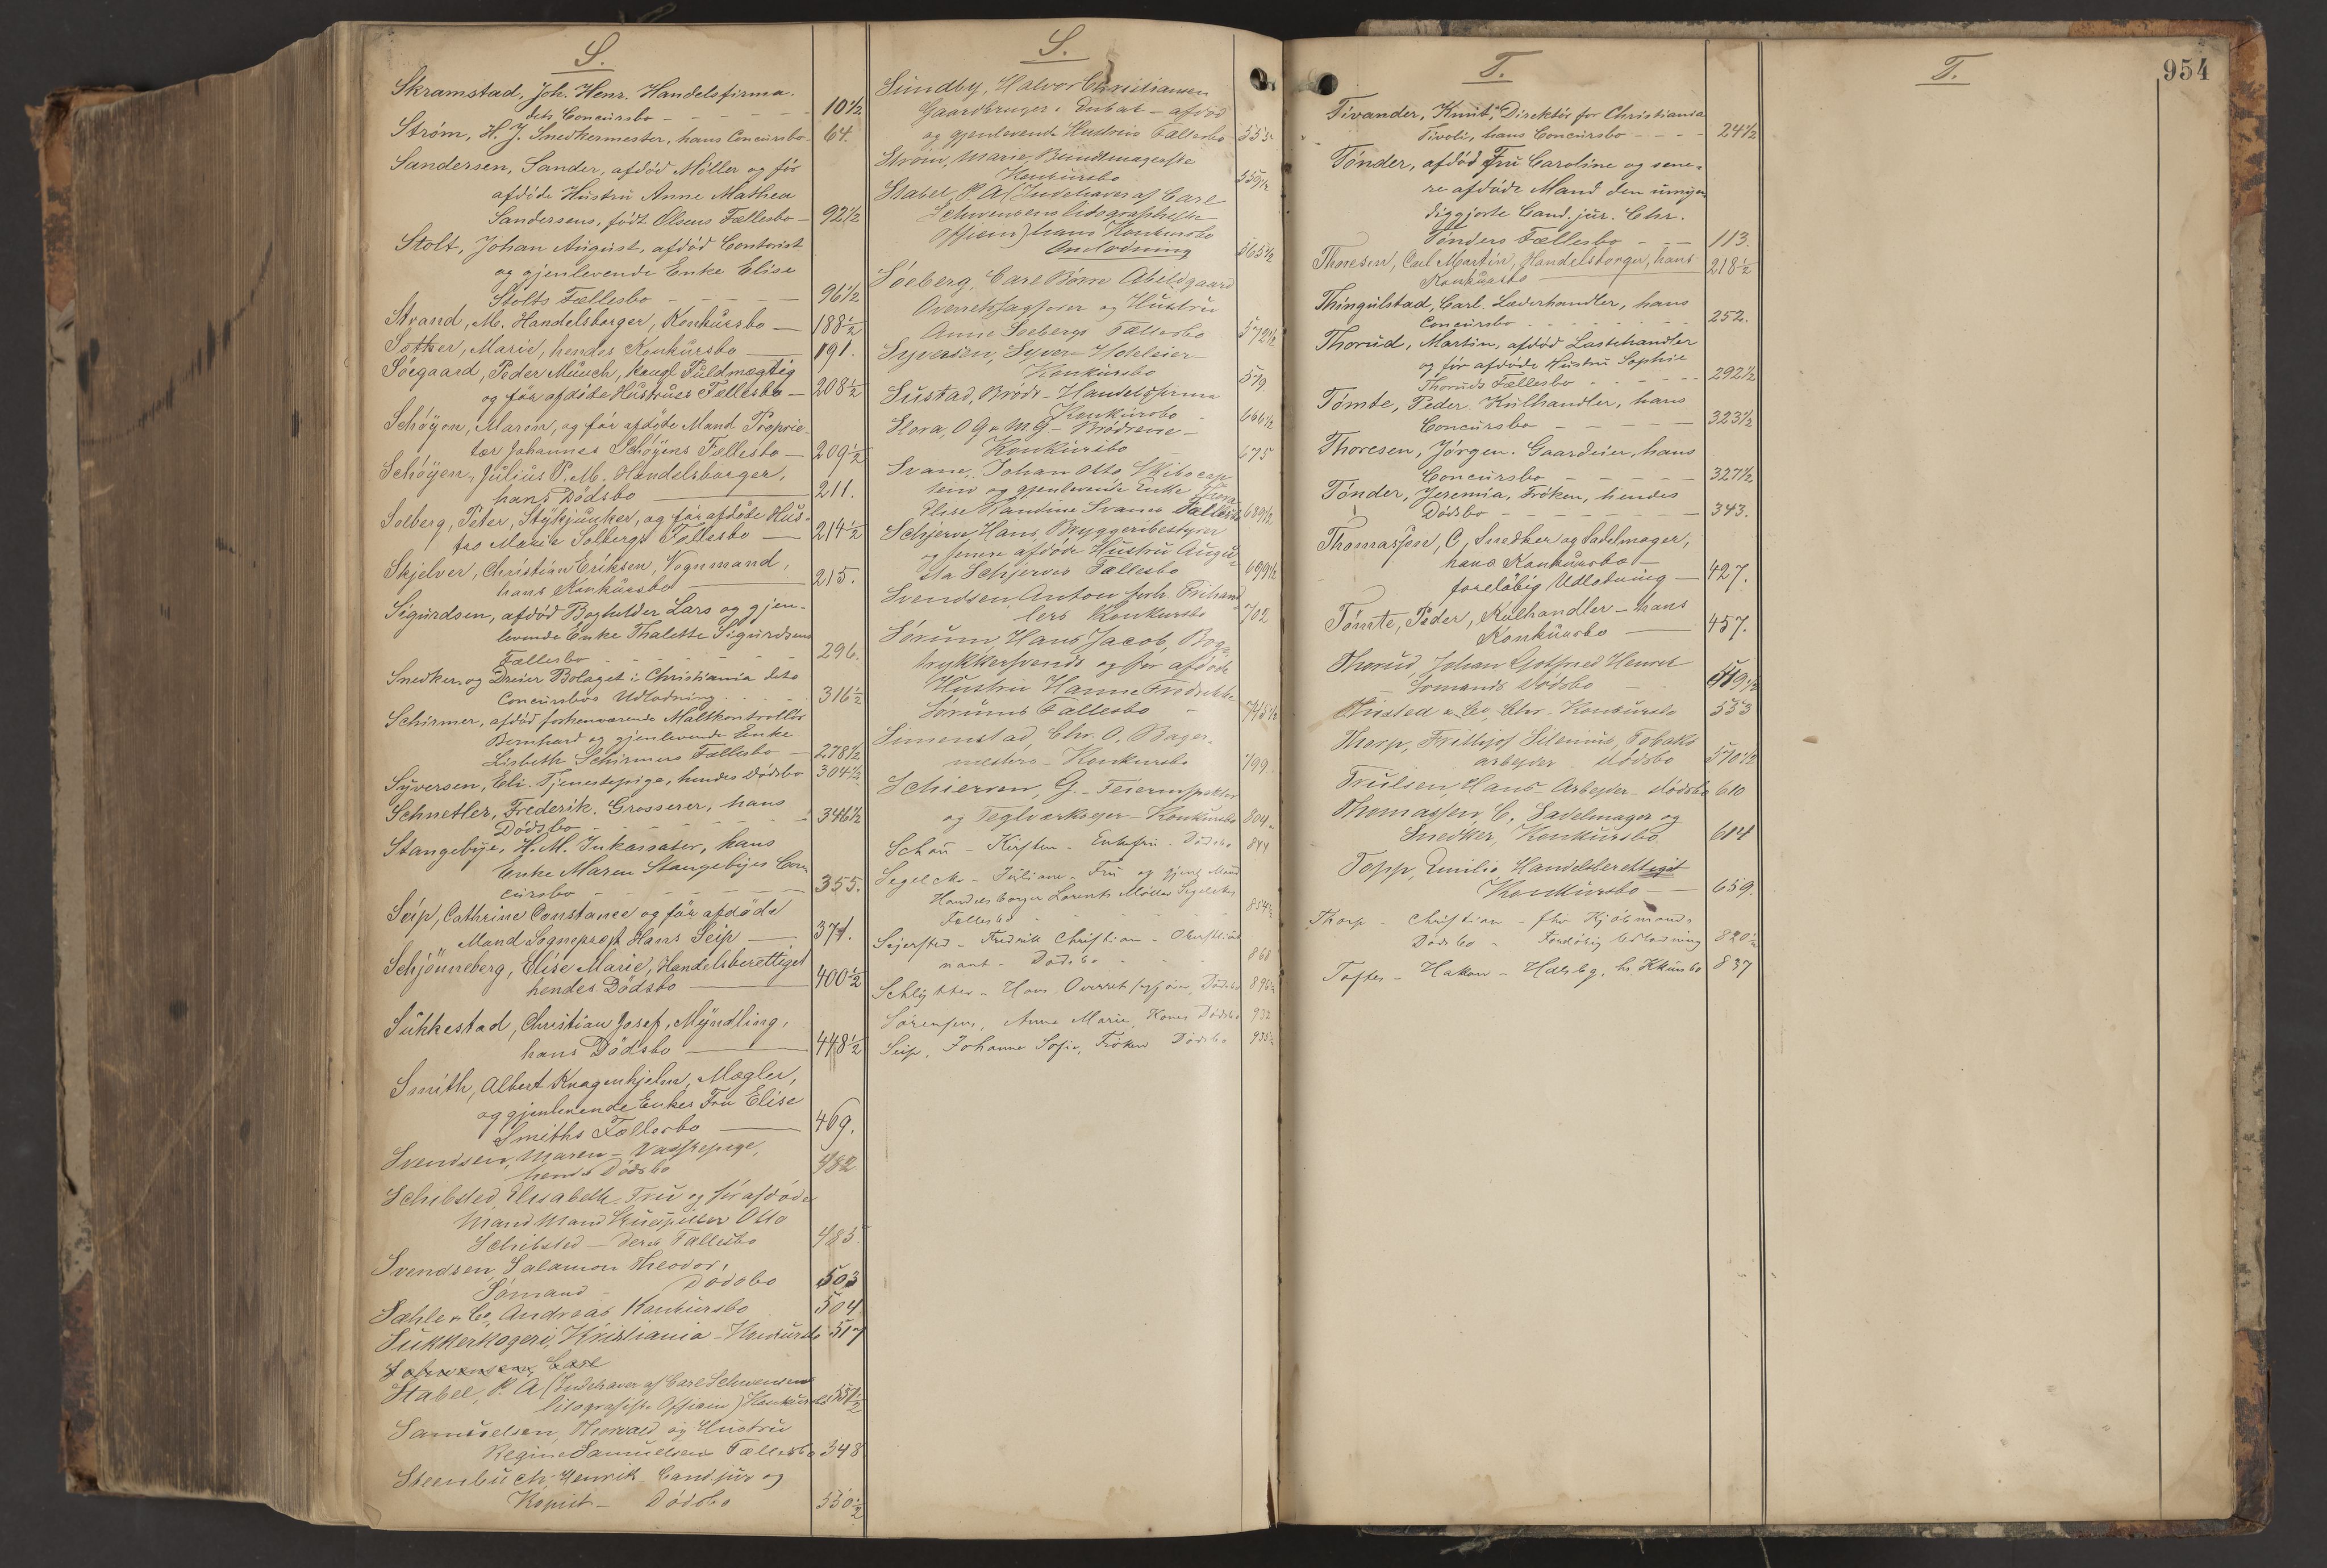 S.
Skramstad, Joh. Henr. Handelsfirma.
dets Concursbo - - - - - - 10 1/2
Strøm, H. J. Snedkermester, hans Concursbo - 64.
Sandersen, Sander, afdød Møller og før
afdøde Hustru Anne Mathea
Sandersens, født Olsens Fællesbo - 92 1/2
Stolt, Johan August, afdød Contorist
og gjenlevende Enke Elise
Stolts Fællesbo - - - - - 96 1/2
Strand, M. Handelsborger, Konkursbo - 188 1/2
Sother, Marie, hendes Konkursbo - 191.
Söegaard, Peder Munch, kongl. Fuldmægtig
og før afdøde Hustrues Fællesbo - 208 1/2
Schøyen, Maren, og før afdøde Mand Proprie-
tær Johannes Schøyens Fællesbo - 209 1/2
Schøyen, Julius P. M. Handelsborger,
hans Dödsbo 211.
Solberg, Peter, Stykjunker, og før afdøde Hus-
tro Marie Solbergs Fællesbo - 214 1/2
Skjelver, Christian Eriksen, Vognmand,
hans Konkursbo 215.
Sigurdsen, afdød Bogholder Lars og gjen-
levende Enke Thalette Sigurdsens
Fællesbo - - - - - - 296.
Snedker- og Dreier Bolaget i Christiania dets
Concursbos Udlodning - - - 316 1/2
Schirmer, afdød forhenværende Maltkontrollør
Bernhard og gjenlevende Enke
Lisbeth Schirmers Fællesbo - 278 1/2
Syversen, Eli. Tjenestepige, hendes Dødsbo 304 1/2
Schnetler, Frederik. Grosserer, hans
Dödsbo - - - - - - 346 1/2
Stangebye, H. M. Inkassator, hans
Enke Maren Stangebyes Con-
cursbo - - - - - - 355.
Seip, Cathrine Constance og før afdøde
Mand Sogneprest Hans Seip - 371.
Schjönneberg, Elise Marie, Handelsberettiget
hendes Dödsbo 400 1/2
Sukkestad, Christian Josef, Myndling,
hans Dödsbo 448 1/2
Smith, Albert Knagenhjelm, Mægler,
og gjenlevende Enkes Fru Elise
Smiths Fællesbo 469.
Svendsen, Maren - Vaskepige,
hendes Dödsbo 482
Schibsted, Elisabeth Fru og før afdøde
Mand Mand Skuespiller Otto
Schibsted - Deres Fællesbo 485.
Svendsen, Salamon Theodor,
Sømand - Dødsbo 503
Sæhle & Co, Andreas Konkursbo 504
Sukkerkogeri, Kristiania - Konkursbo 517
Schwensen, Carl
Stabel, P. A (Indehaver af Carl Schwensens
litografiske Officin) Konkursbo 551 1/2
Samuelsen, Thorvald og Hustru
Regine Samuelsens Fællesbo 348
Steenbuch, Henrik - Cand jur og
Kopist - Dödsbo 550 1/2
S.
Sundby, Halvor Christiansen
Gaardbruger i Enebak - afdød
og gjenlevende Hustrus Fællesbo 555
Strøm, Marie, Bundtmagerske
Konkursbo 559 1/2
Stabel, P. A (Indehaver af Carl
Schwensens litographiske
Officin) hans Konkursbo
Omlodning 565 1/2
Söeberg, Carl Børre Abildgaard
Overretssagfører og Hustru
Anne Soebergs Fællesbo 572 1/2
Syversen, Syver - Hoteleier -
Konkursbo 579
Sustad, Brødr - Handelsfirma
Konkursbo - 666 1/2
Slora, O G & M. G - Brødrene -
Konkursbo 675
Svane, Johan Otto Skibscap
tein og gjenlevende Enke Thora
Elise Nandine Svanes Fællesbo 689 1/2
Schjerve, Hans, Bryggeribestyrer
og senere afdøde Hustru Augu-
sta Schjerves Fællesbo 699 1/2
Svendsen, Anton forh. Frihand-
lers Konkursbo 702
Sørum, Hans Jacob, Bog-
trykkersvends og før afdøde
Hustru Hanne Fredrikke
Sørums Fællesbo - 745 1/2
Simenstad, Chr. O. Bager-
mesters - Konkursbo 799
Schierven, G. - Feierinspektør
og Teglværkseyer - Konkursbo 804
Schou - Kirsten - Enkefru - Dødsbo 844
Segelcke - Juliane - Fru og gjenl. Mand
Handelsborger Lorents Møller Segelckes
Fællesbo - - - - - 854 1/2
Sejersted - Fredrik Christian - Oberstlieut-
nant - Dødsbo - - - 860
Schlytter - Hans Overretssagfører, Dødsbo 896 1/2
Sørensen, Anne Marie, Kones Dødsbo 932
Seip, Johanne Sofie, Frøken Dødsbo 935 1/2
T.
Tivander, Knut, Direktør for Christiania
Tivoli, hans Concursbo - - - - 24 1/2
Tónder, afdød Fru Caroline og sene-
re afdøde Mand den umyn-
diggjorte Cand. jur. Chr.
Tønders Fællesbo - - - 113.
Thoresen, Carl Martin, Handelsborger, hans
Konkursbo 218 1/2
Thingulstad, Carl. Læderhandler, hans
Concursbo - - - - - - 252.
Thorud, Martin, afdød Lastehandler
og før afdøde Hustru Sophie
Thoruds Fællesbo - - - - - 292 1/2
Tømte, Peder. Kulhandler, hans
Concursbo - - - - - 323 1/2
Thoresen, Jørgen. Gaardeier, hans
Concursbo - - - - - 327 1/2
Tónder, Jeremia, Frøken, hendes
Dödsbo - - - - - - 343.
Thomassen, C, Snedker og Sadelmager,
hans Konkursbo -
foreløbig Udlodning - 427.
Tömte, Peder, Kulhandler - hans
Konkursbo 457.
Thorud, Johan Gotfried Henrik
- Sømands Dödsbo - 519 1/2
Thisted & Co, Chr. Konkursbo 553
Thorp, Frithjof Silenius, Tobaks
arbeyder - dödsbo 570 1/2
Trulsen, Hans - Arbeyder - dödsbo 610
Thomassen, C. Sadelmager og
Snedker, Konkursbo 614
Topp, Emilie, Handelsberettiget
Konkursbo - - 659.
Thorp - Christian - fhv Kjøbmands
Dødsbo - Foreløbig Udlodning 820 1/2
Tofter - Hakon - Hdlsbg. hs. Kkursbo 837
T.
954